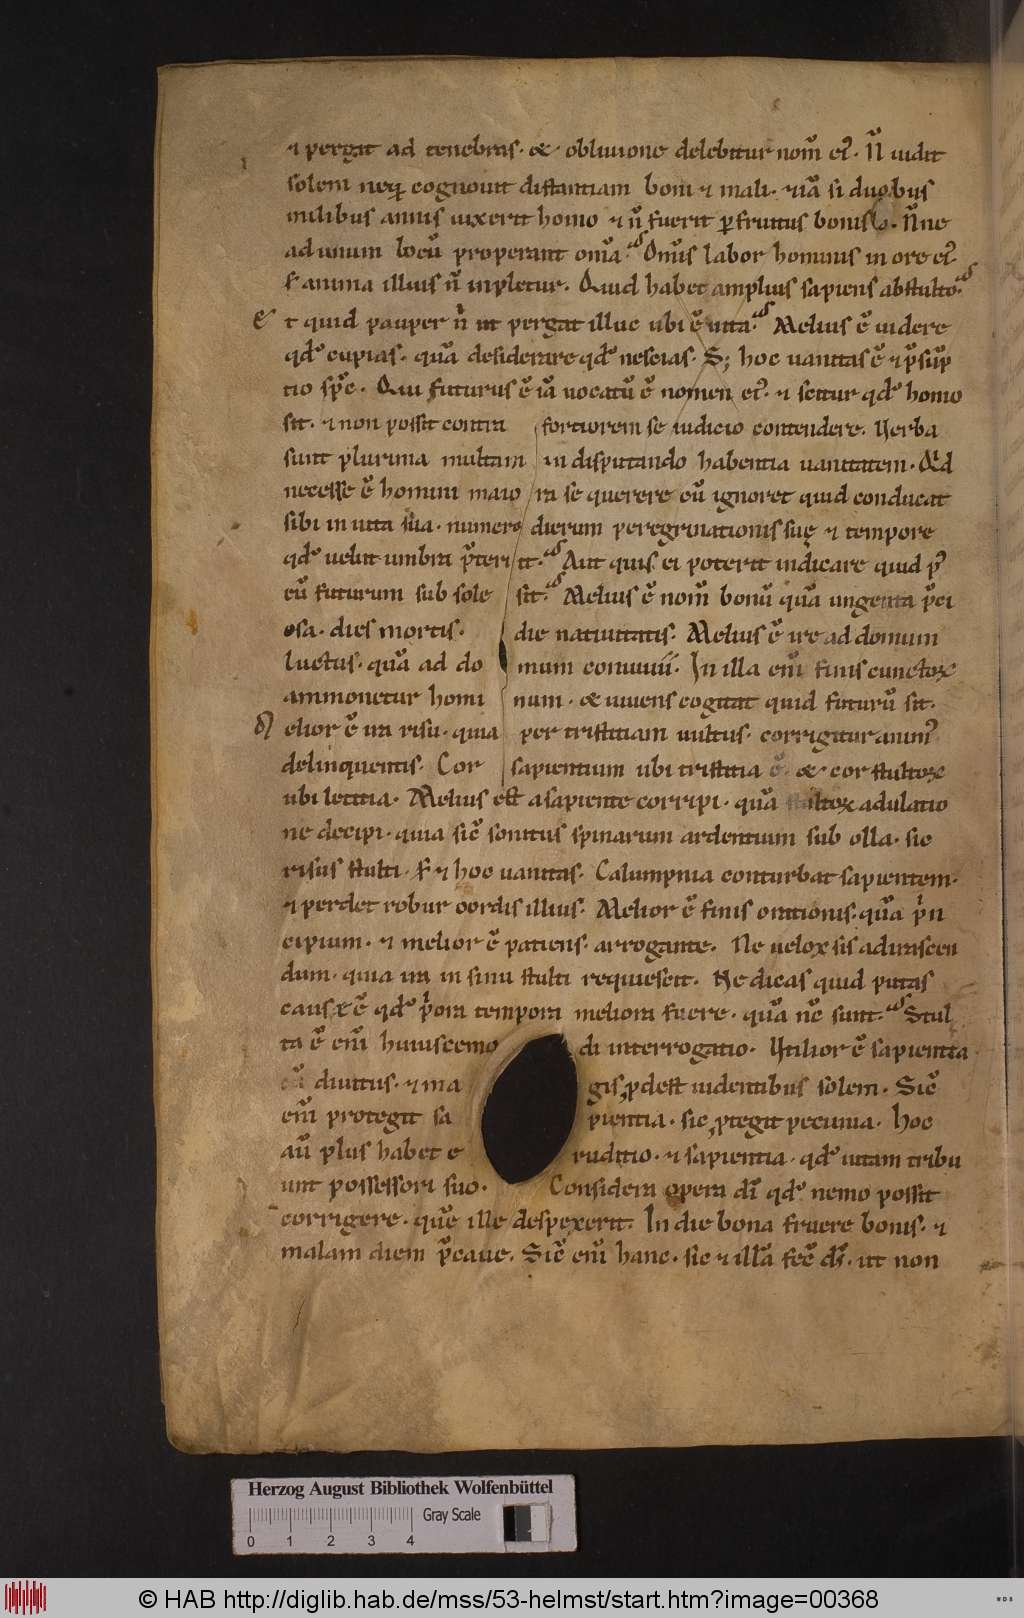 ⁊ pergit ad tenebras· & obliuione delebitur nom̅ ei᷒· N̅ uidit
solem neq; cognouit distantiam boni ⁊ mali· ⁊iā si duobus
milibus annis uixerit homo ⁊ n̅ fuerit ꝑfruitus bonis· N̅ne
ad unum locū properant om̅a· Om̅is labor hominis in ore ei᷒
s; anima illius n̅ inpletur· Quid habet amplius sapiens a stulto·
Et quid pauper n̅ ut pergat illuc ubi ē uita· Melius ē uidere
qd̓ cupias· quā desiderare qd̓ nescias· S; hoc uanitas ē ⁊ p̄sūp
tio sp̄c· Qui futurus ē iā uocatū ē nomen ei᷒· ⁊ scitur qd̓ homo
sit· ⁊ non possit contra fortiorem se iudicio contendere· Uerba
sunt plurima multam in disputando habentia uanitatem· Qid
necesse ē homini maiora se querere cū ignoret quid conducat
sibi in uita sua· numero dierum peregrinationis suę ⁊ tempore
qd̓ uelut umbra p̄terit· Aut quis ei poterit indicare quid p᷒
eū futurum sub sole sit· Melius ē nom̅ bonū quā ungenta p̄ci
osa· dies mortis· die natiuitatis· Melius ē ire ad domum
luctus· quā ad domum conuiuii· In illa em̅ finis cunctoꝝ
ammonetur hominum· & uiuens cogitat quid futurū sit·
Melior ē ira risu· quia per tristitiam uultus· corrigitur anim᷒
delinquentis· Cor sapientium ubi tristitia ē· & cor stultoꝝ
ubi letitia· Melius est a sapiente corripi· quā stultoꝝ adulatio
ne decipi· quia sic̄ sonitus spinarum ardentium sub olla· sic
risus stulti· s; ⁊ hoc uanitas· Calumpnia conturbat sapientem·
⁊ perdet robur cordis illius· Melior ē finis orationis· quā p̍n
cipium· ⁊ melior ē patiens· arrogante· Ne uelox sis ad irascen
dum· quia ira in sinu stulti requiescit· Ne dicas quid putas
causę ē qd̓ p̍ora tempora meliora fuere· quā nc̄ sunt· Stul
ta ē em̅ huiuscemodi interrogatio· Utilior ē sapientia
cū diuitiis· ⁊ magis ꝓdest uidentibus solem· Sic̄
em̅ protegit sapientia· sic ꝓtegit pecunia· Hoc
aū plus habet eruditio· ⁊ sapientia· qd̓ uitam tribu
unt possessori suo· Considera opera di̅ qd̓ nemo possit
corrigere· quē ille despexerit· In die bona fruere bonis· ⁊
malam diem p̄caue· Sic̄ em̅ hanc· sic ⁊ illā fec̄ ds̅· ut non
Herzog August Bibliothek Wolfenbüttel
Gray Scale
0 1 2 3 4
© HAB http://diglib.hab.de/mss/53-helmst/start.htm?image=00368